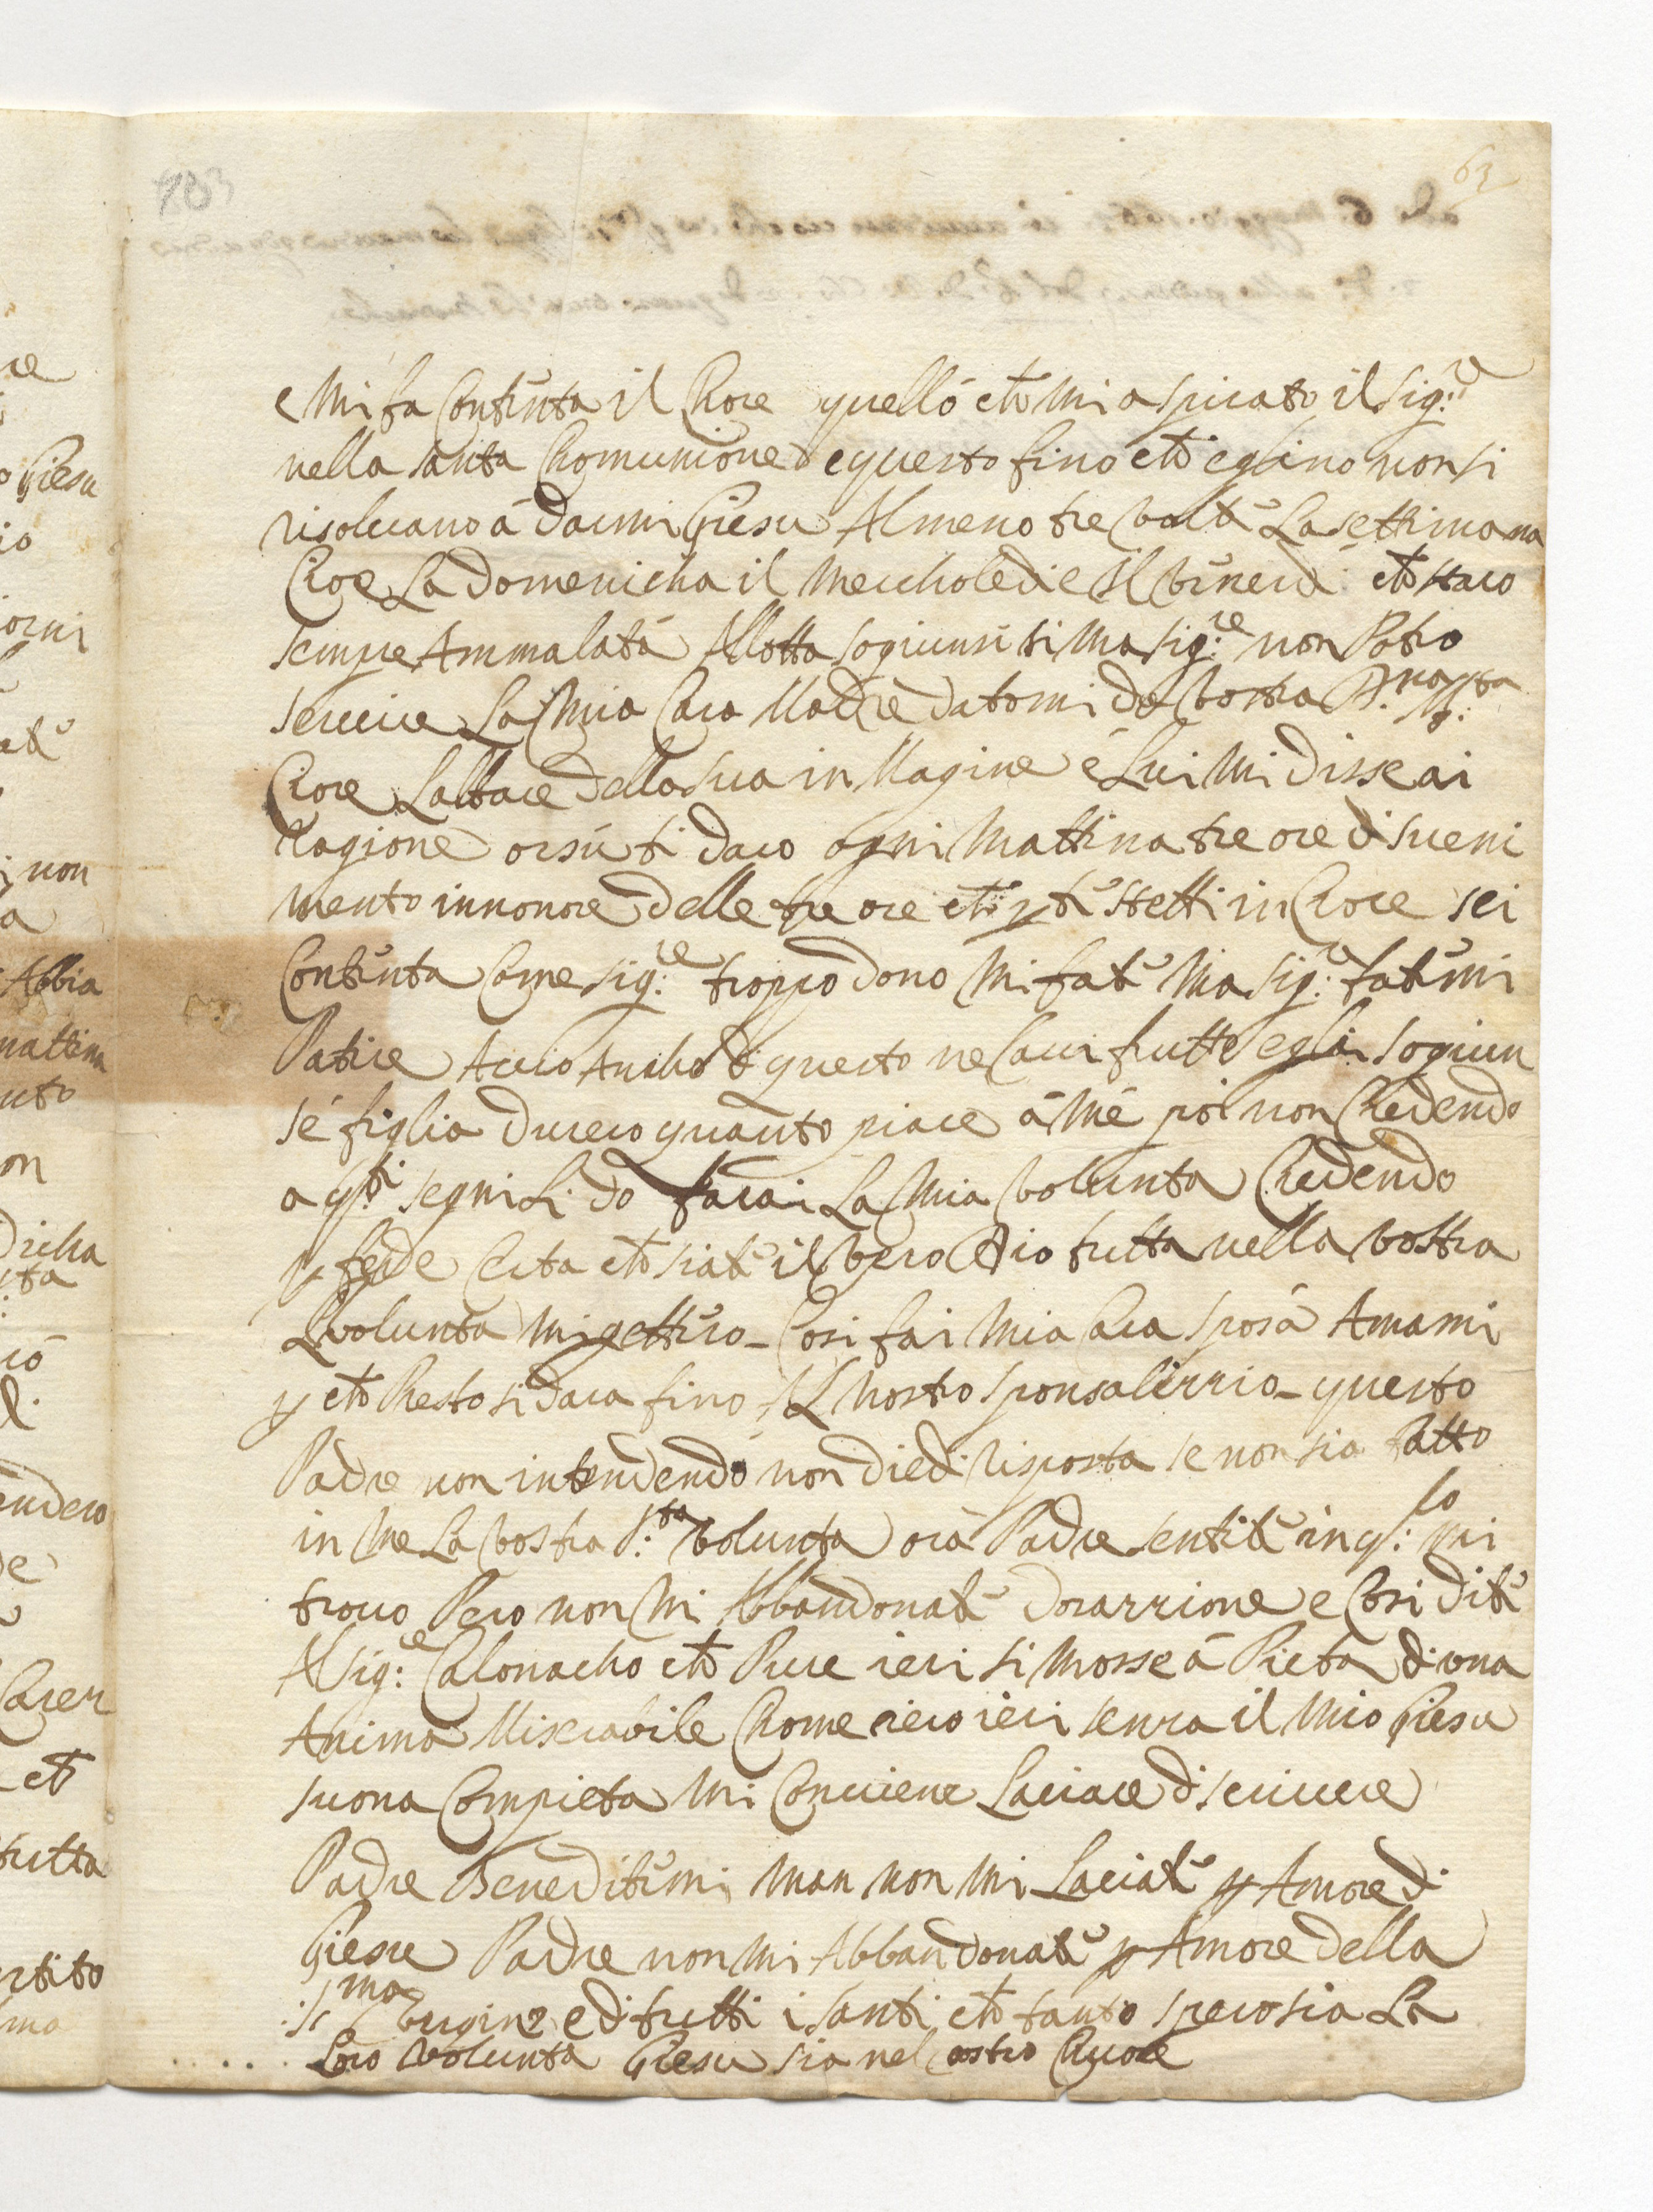 63
783
e Mi fa Contenta il Chore quello che Mi a spirato il Sig:re
nella santa Chomunione e questo fino che eglino non si
risoluano à darmi Giesu Almeno tre volte La settimana
Cioe La domenicha il Mercholedi e Il venerdi che staro
sempre Ammalata Allotta sogiunsi si Ma Sig:re non Potro
seruire La Mia Cara Madre datomi da vostra D.na M:ta
Cioe L'altare della sua in Magine e Lui Mi disse ai
ragione orsù ti daro ogni Mattina tre ore di sueni
mento in nonore delle tre ore che p te stetti in Croce sei
Contenta Come Sig:re troppo dono Mi fate Ma Sig:re fatemi
Patire Accio Ancho di questo ne Caui frutto egli sogiun
se figlia durero quanto piace à Mé poi non Credendo
a q:ti segni Li do farai La Mia volunta Credendo
p fede Certa che siate il vero Dio tutta nella vostra
volunta Mi gettero - Cosi fai Mia Cara sposa Amami
p che Presto si dara fino Al Nostro sponsalizzio - questo
Padre non intendendo non diedi risposta se non sia fatto
in Me La vostra S:ta volunta orà Padre sentite in q:lo mi
trouo Pero non Mi Abbandonate d'orazzione e Cosi dite
Al Sig:re Calonacho che Pure ieri si Mosse á Pieta di una
Anima Miserabile Chome iero ieri senza il Mio Giesu
suona Compieta Mi Conuiene Laciare di scriuere
Padre Beneditemi Man non Mi Laciate p Amore di
Giesu Padre non Mi Abbandonate p Amore della
S:ma Vergine e di tutti i santi che tanto spero sia La
Loro Volunta Giesu sia nel vostro Chuore
re
Giesu
io
orni
non
a
Abbia
mattina
nto
on
dicha
ta
endero
Carer
che
tutta
rtito